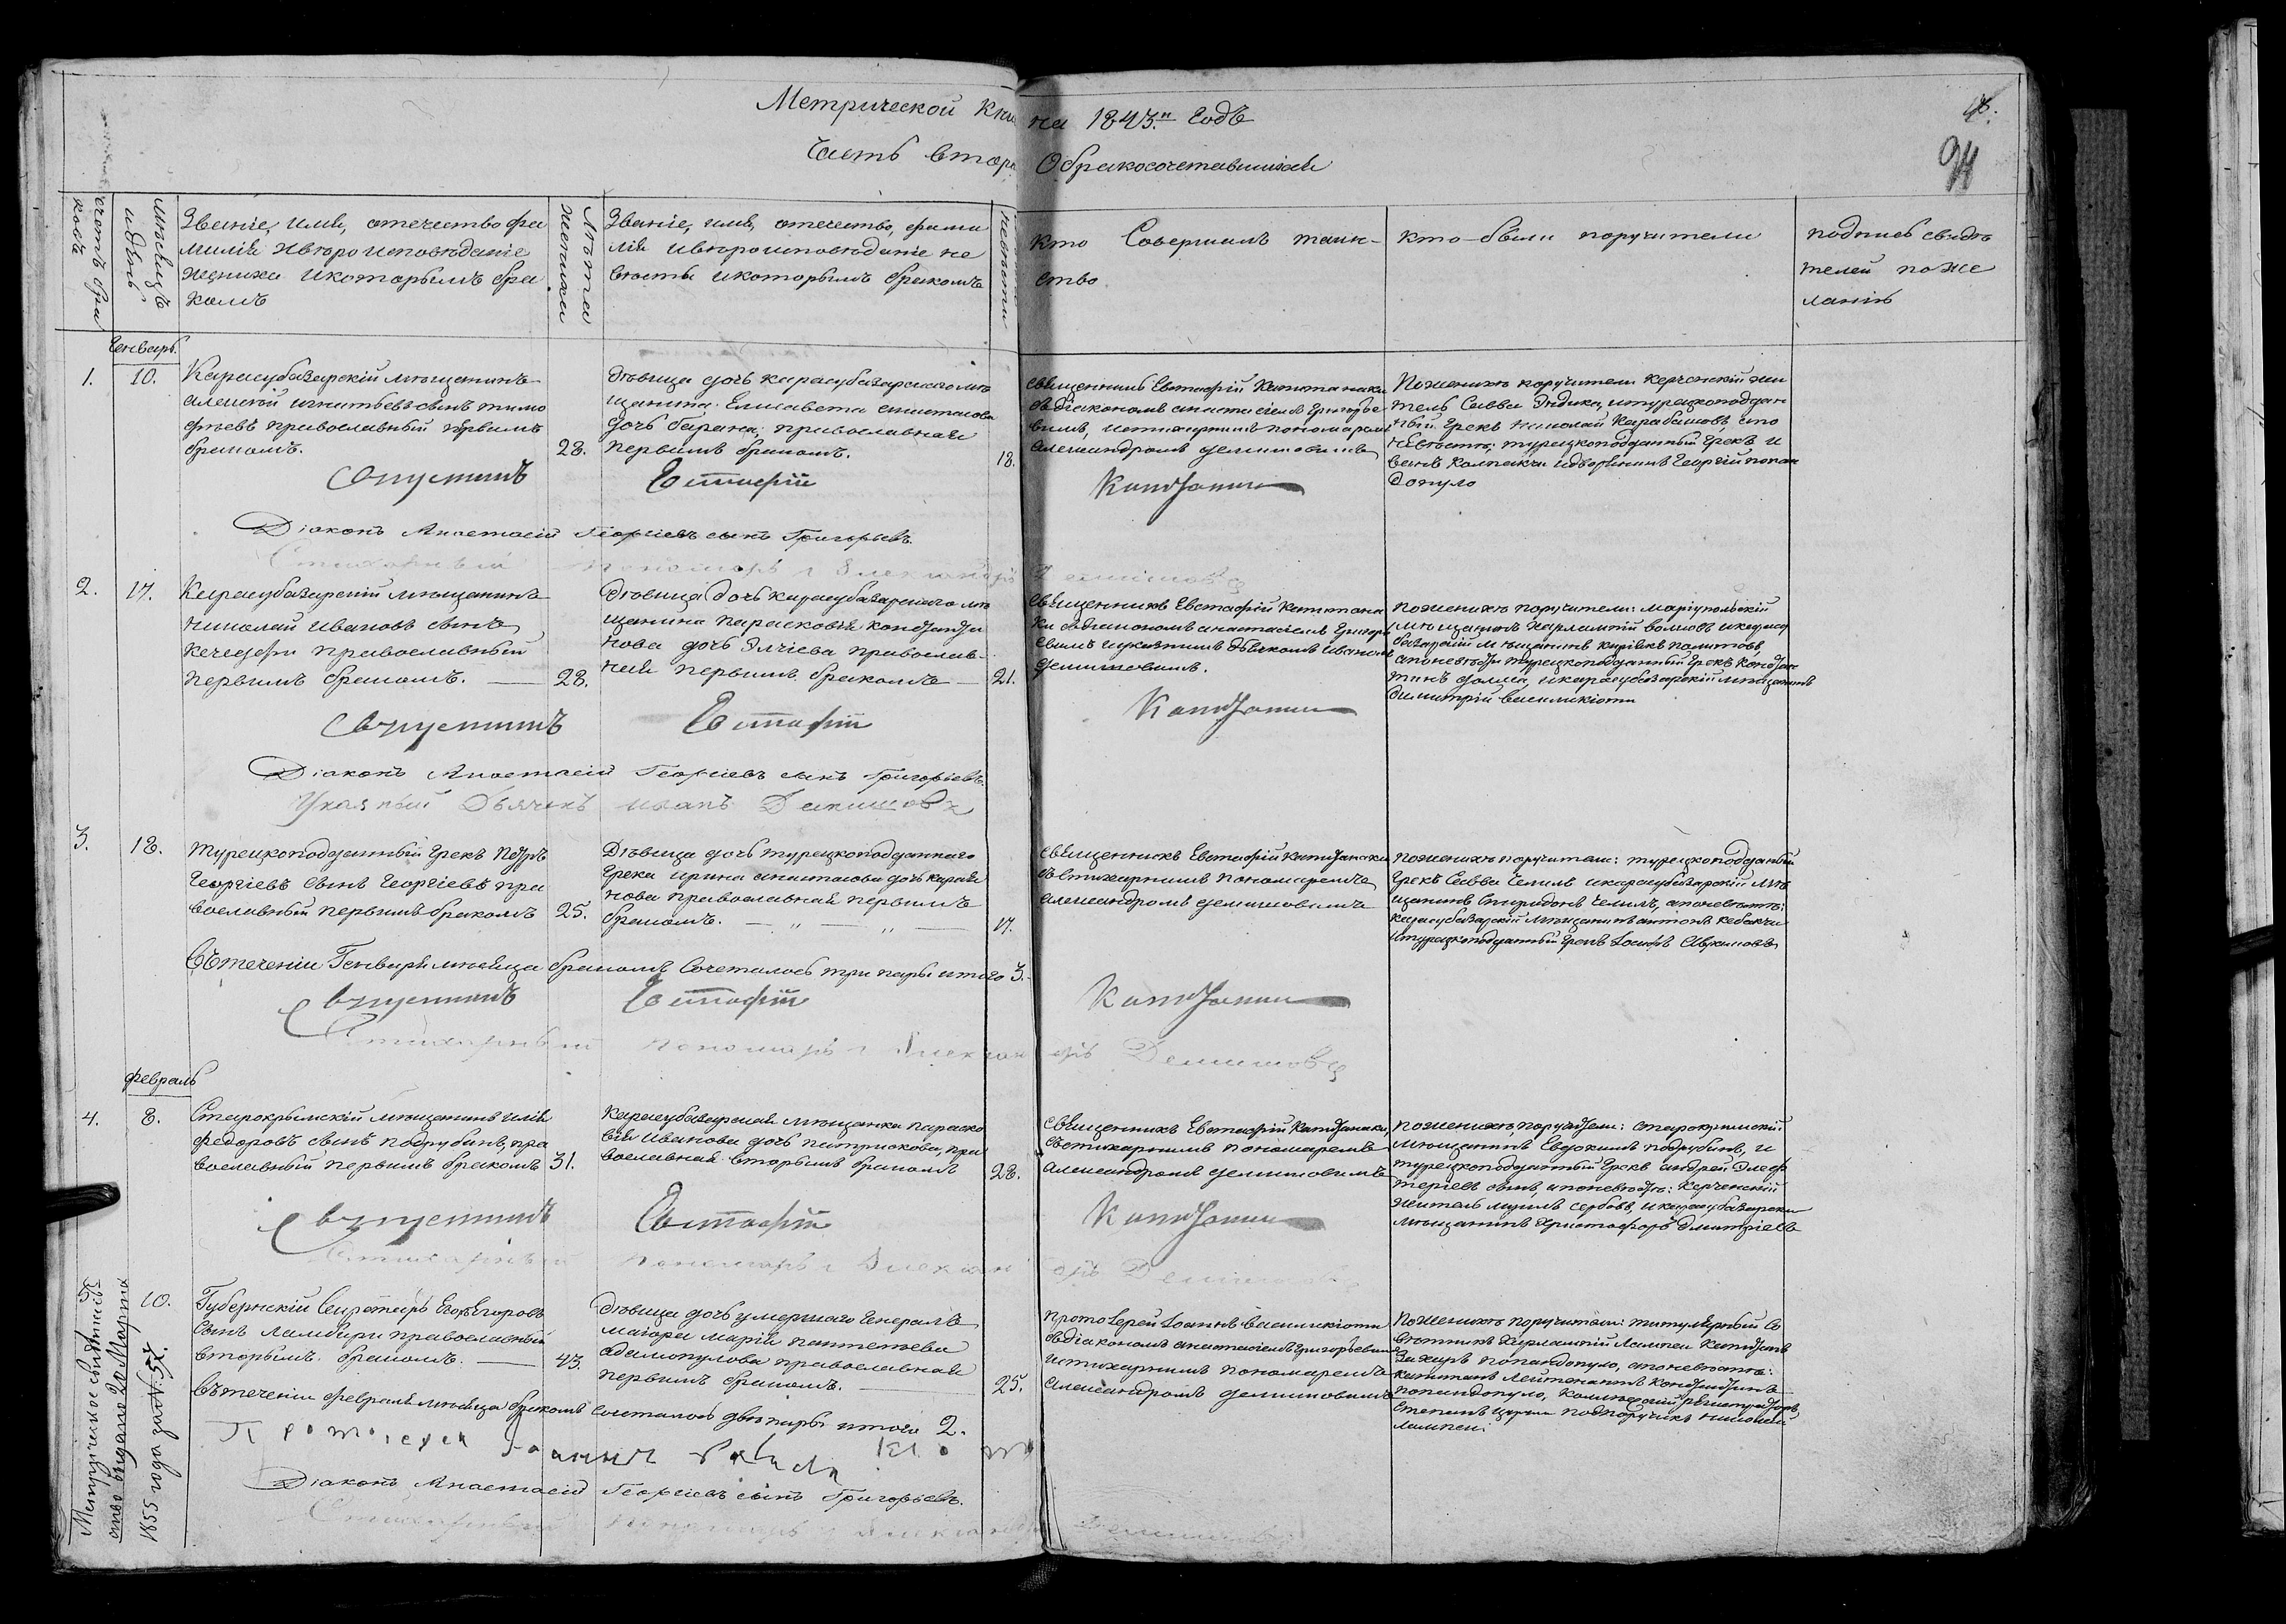 Метрической Кни на 1843.й годъ
Часть втора О бракосочетавшихся
48.
94
счетъ бра
ковъ
Мѣсяцъ
и день
Званіе, имя, отечество фа
милія и вѣроисповѣданіе
жениха и которымъ бра
комъ
Лѣта
жениха
Званіе, имя, отечество, фами
лія и вѣроисповѣданіе не
вѣсты и которымъ бракомъ
невѣсты
Кто Совершалъ таин-
ство
Кто были поручители
подпись свидѣ
телей по же
ланію
Генварь.
1.
10.
Карасубазарскій мѣщанинъ
алексѣй игнатьевъ сынъ тимо
фѣевъ православный первымъ
бракомъ.
28.
Дѣвица дочь карасубазарскаго мѣ
щанина Елисавета анастасова
дочь , православная
первымъ бракомъ.
18.
священникъ Евстафій Капитанаки
съ діакономъ анастасіемъ Григорье
вымъ, и стихарнымъ пономаремъ
александромъ демишовымъ
По женихѣ поручители Керченскій жи
тель Савва , и турецкоподдан
ный Грекъ николай Карабашовъ, а по
невѣстѣ; турецкоподданный Грекъ и
ванъ и дворянинъ Георгій попан
допуло
Евстафій
Діаконъ Анастасій Георгіевъ сынъ Григорьевъ.
Стихарный пономарь Александръ Демишовъ
2.
17.
Карасубазарскій мѣщанинъ
николай Ивановъ сынъ
православный
первымъ бракомъ.
28.
Дѣвица дочь карасубазарскаго мѣ
щанина парасковія констанди
нова дочь Элчіева православ
ная первымъ бракомъ
21.
священникъ Евстафій Капитана
ки съ діакономъ анастасіемъ Григорь
евымъ и указнымъ дьячкомъ Иваномъ
демишовымъ.
по женихѣ поручители: маріупольскій
мѣщанинъ харлампій волковъ и карасу
базарскій мѣщанинъ
а по невѣстѣ турецкоподданный Грекъ Констан
тинъ и карасубазарскій мѣщанинъ
димитрій василикіоти
Евстафій
Діаконъ Анастасій Георгіевъ сынъ Григорьевъ.
Указный Дьячекъ иванъ Демишовъ
3.
18.
турецкоподданный Грекъ Петръ
Георгіевъ сынъ Георгіевъ пра
вославный первымъ бракомъ
25.
Дѣвица дочь турецкоподданнаго
Грека ирина анастасова дочь
нова православная первымъ
бракомъ. — „ — „ —
17.
священникъ Евстафій Капитанаки
съ стихарнымъ пономаремъ
александромъ демишовымъ
по женихѣ поручители: турецкоподданный
Грекъ Савва и карасубазарскій мѣ
щанинъ Спиридонъ , а по невѣстѣ:
карасубазарскій мѣщанинъ антонъ
и турецкоподданный Грекъ Іосифъ
Въ теченіи Генваря мѣсяца бракомъ Сочеталось три пары итого 3.
Евстафій
Стихарный пономарь Александръ Демишовъ
Февраль
4.
8.
Старокрымскій мѣщанинъ илія
федоровъ сынъ , пра
вославный первымъ бракомъ
31.
Карасубазарская мѣщанка параско
вія Иванова дочь , пра
вославная вторымъ бракомъ
28.
священникъ Евстафій Капитанаки,
съ стихарнымъ пономаремъ
александромъ демишовымъ
по женихѣ, поручители: старокрымскій
мѣщанинъ Евдокимъ , и
турецкоподданный Грекъ андрей Элеф
теріевъ сынъ, и по невѣстѣ: Керченскій
житель и карасубазарскій
мѣщанинъ Христофоръ Дмитріевъ
Евстафій
Стихарный пономарь Александръ Демишовъ
5.
10.
Губернскій Секретарь Егоръ Егоровъ
сынъ Ламбири православный
вторымъ бракомъ.
43.
Дѣвица дочь умершаго Генералъ
маіора Марія пантелѣева
адамопулова православная
первымъ бракомъ.
25.
протоіерей Іоаннъ василикіоти
съ діакономъ анастасіемъ Григорьевымъ
и стихарнымъ пономаремъ
александромъ демишовымъ
По женихѣ поручители: титулярный Со
вѣтникъ Харлампій Лампси Капитанъ
Захаръ попандопуло, а по невѣстѣ:
капитанъ Лейтенантъ Константинъ
попандопуло, Коллежскій регистраторъ
Степанъ подпоручикъ николай
Лампси.
Въ теченіи февраля мѣсяца бракомъ сочеталось двѣ пары итого 2.
Протоіерей Іоаннъ
Діаконъ Анастасій Георгіевъ сынъ Григорьевъ.
Стихарный пономарь Александръ Демишовъ
Метрическое свидѣтель
ство выдано 20 Марта
1855 года за № 57.